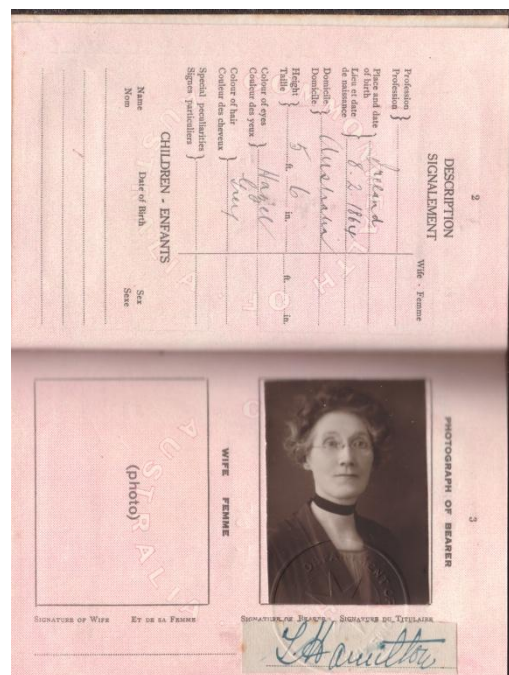 2
DESCRIPTION
SIGNALEMENT
Wife - Femme
Profession
Profession
Place and date
of birth
Lieu et date
de naissance
Ireland
8. 2. 1864
Domicile
Domicile
Australia
Height
Taille
5 ft. 6 in. ft. in.
Colour of eyes
Couleur des yeux
Hazel
Colour of hair
Couleur des cheveux
Grey
Special peculiarities
Signes particuliers
CHILDREN - ENFANTS
Name Date of Birth Sex
Nom Sexe
3
PHOTOGRAPH OF BEARER
WIFE FEMME
(photo)
AUSTRALIA
SIGNATURE OF WIFE ET DE SA FEMME
SIGNATURE OF BEARER SIGNATURE DU TITULAIRE
Hamilton